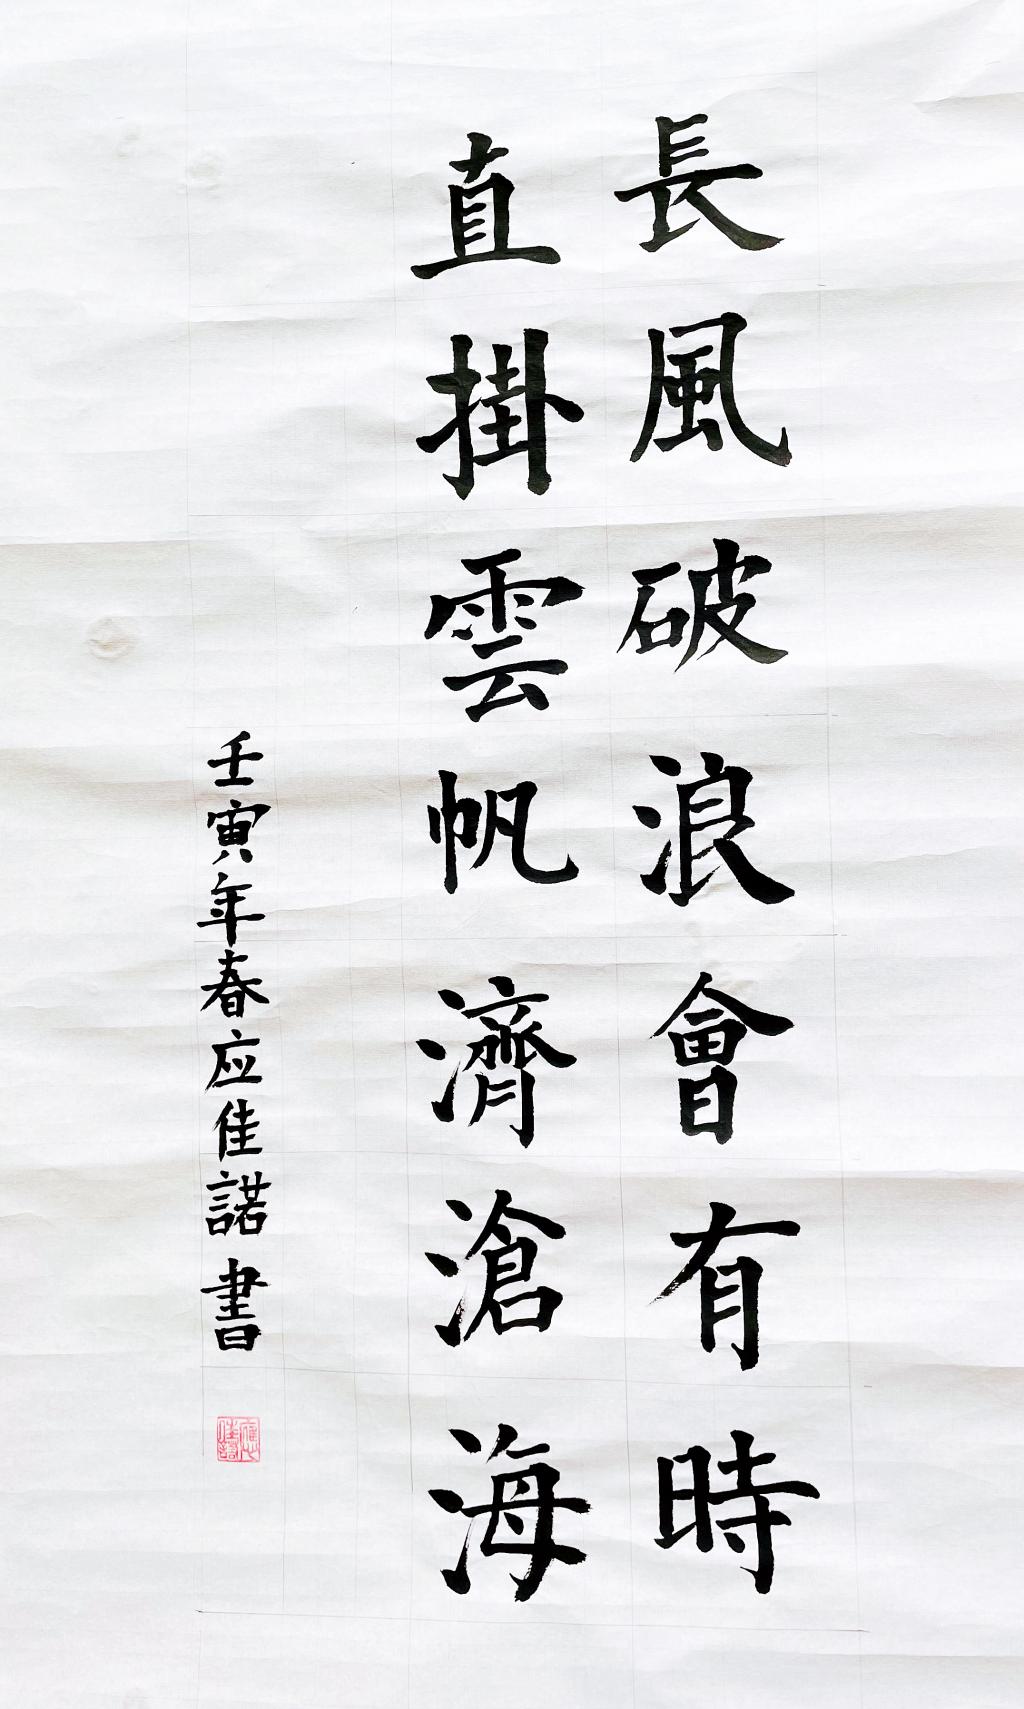 長風破浪會有時
直掛雲帆濟滄海
壬寅年春应佳諾書